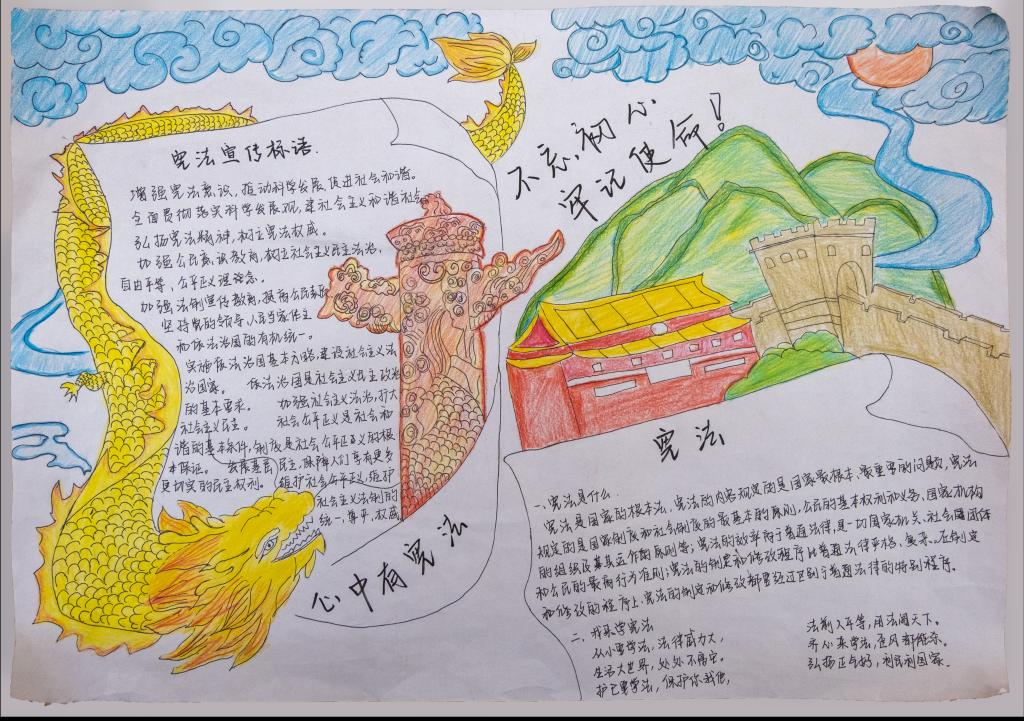 宪法宣传标语.
增强宪法意识、推动科学发展,促进社会和谐。
全面贯彻落实科学发展观,建社会主义和谐社会
弘扬宪法精神,树立宪法权威。
加强公民意识教育,树立社会主义民主法治、
自由平等、公平正义理念。
加强法制宣传教育,提高公民
坚持党的领导、人民当家作主
和依法治国的有机统一。
实施依法治国基本方略,建设社会主义法
治国家。 依法治国是社会主义民主政治
的基本要求。 加强社会主义法治,扩大
社会主义民主。 社会公平正义是社会和
谐的基本条件,制度是社会公平正义的根
本保证。 发展基层民主,保障人们享有更多
更切实的民主权利。 维护社会公平正义,维护
社会主义法制的
统一、尊严、权威
心中有宪法
不忘初心
牢记使命!
宪法
一、宪法是什么.
宪法是国家的根本法,宪法的内容规定的是国家最根本、最重要的问题,宪法
规定的是国家制度和社会制度的最基本的原则,公民的基本权利和义务、国家机构
的组织及其运作的原则等;宪法的效率高于普通法律,是一切国家机关、社会团体
和公民的最高行为准则;宪法的制定和修改程序比普通法律严格、复杂。在制定
和修改的程序上,宪法的制定和修改都要经过区别于普通法律的特别程序。
二、我来学宪法
从小要学法,法律威力大,
生活大世界,处处不离它。
护己要学法,保护你我他,
法制人平等,用法闯天下。
齐心来学法,歪风都能杀。
弘扬正气妈,利民利国家.